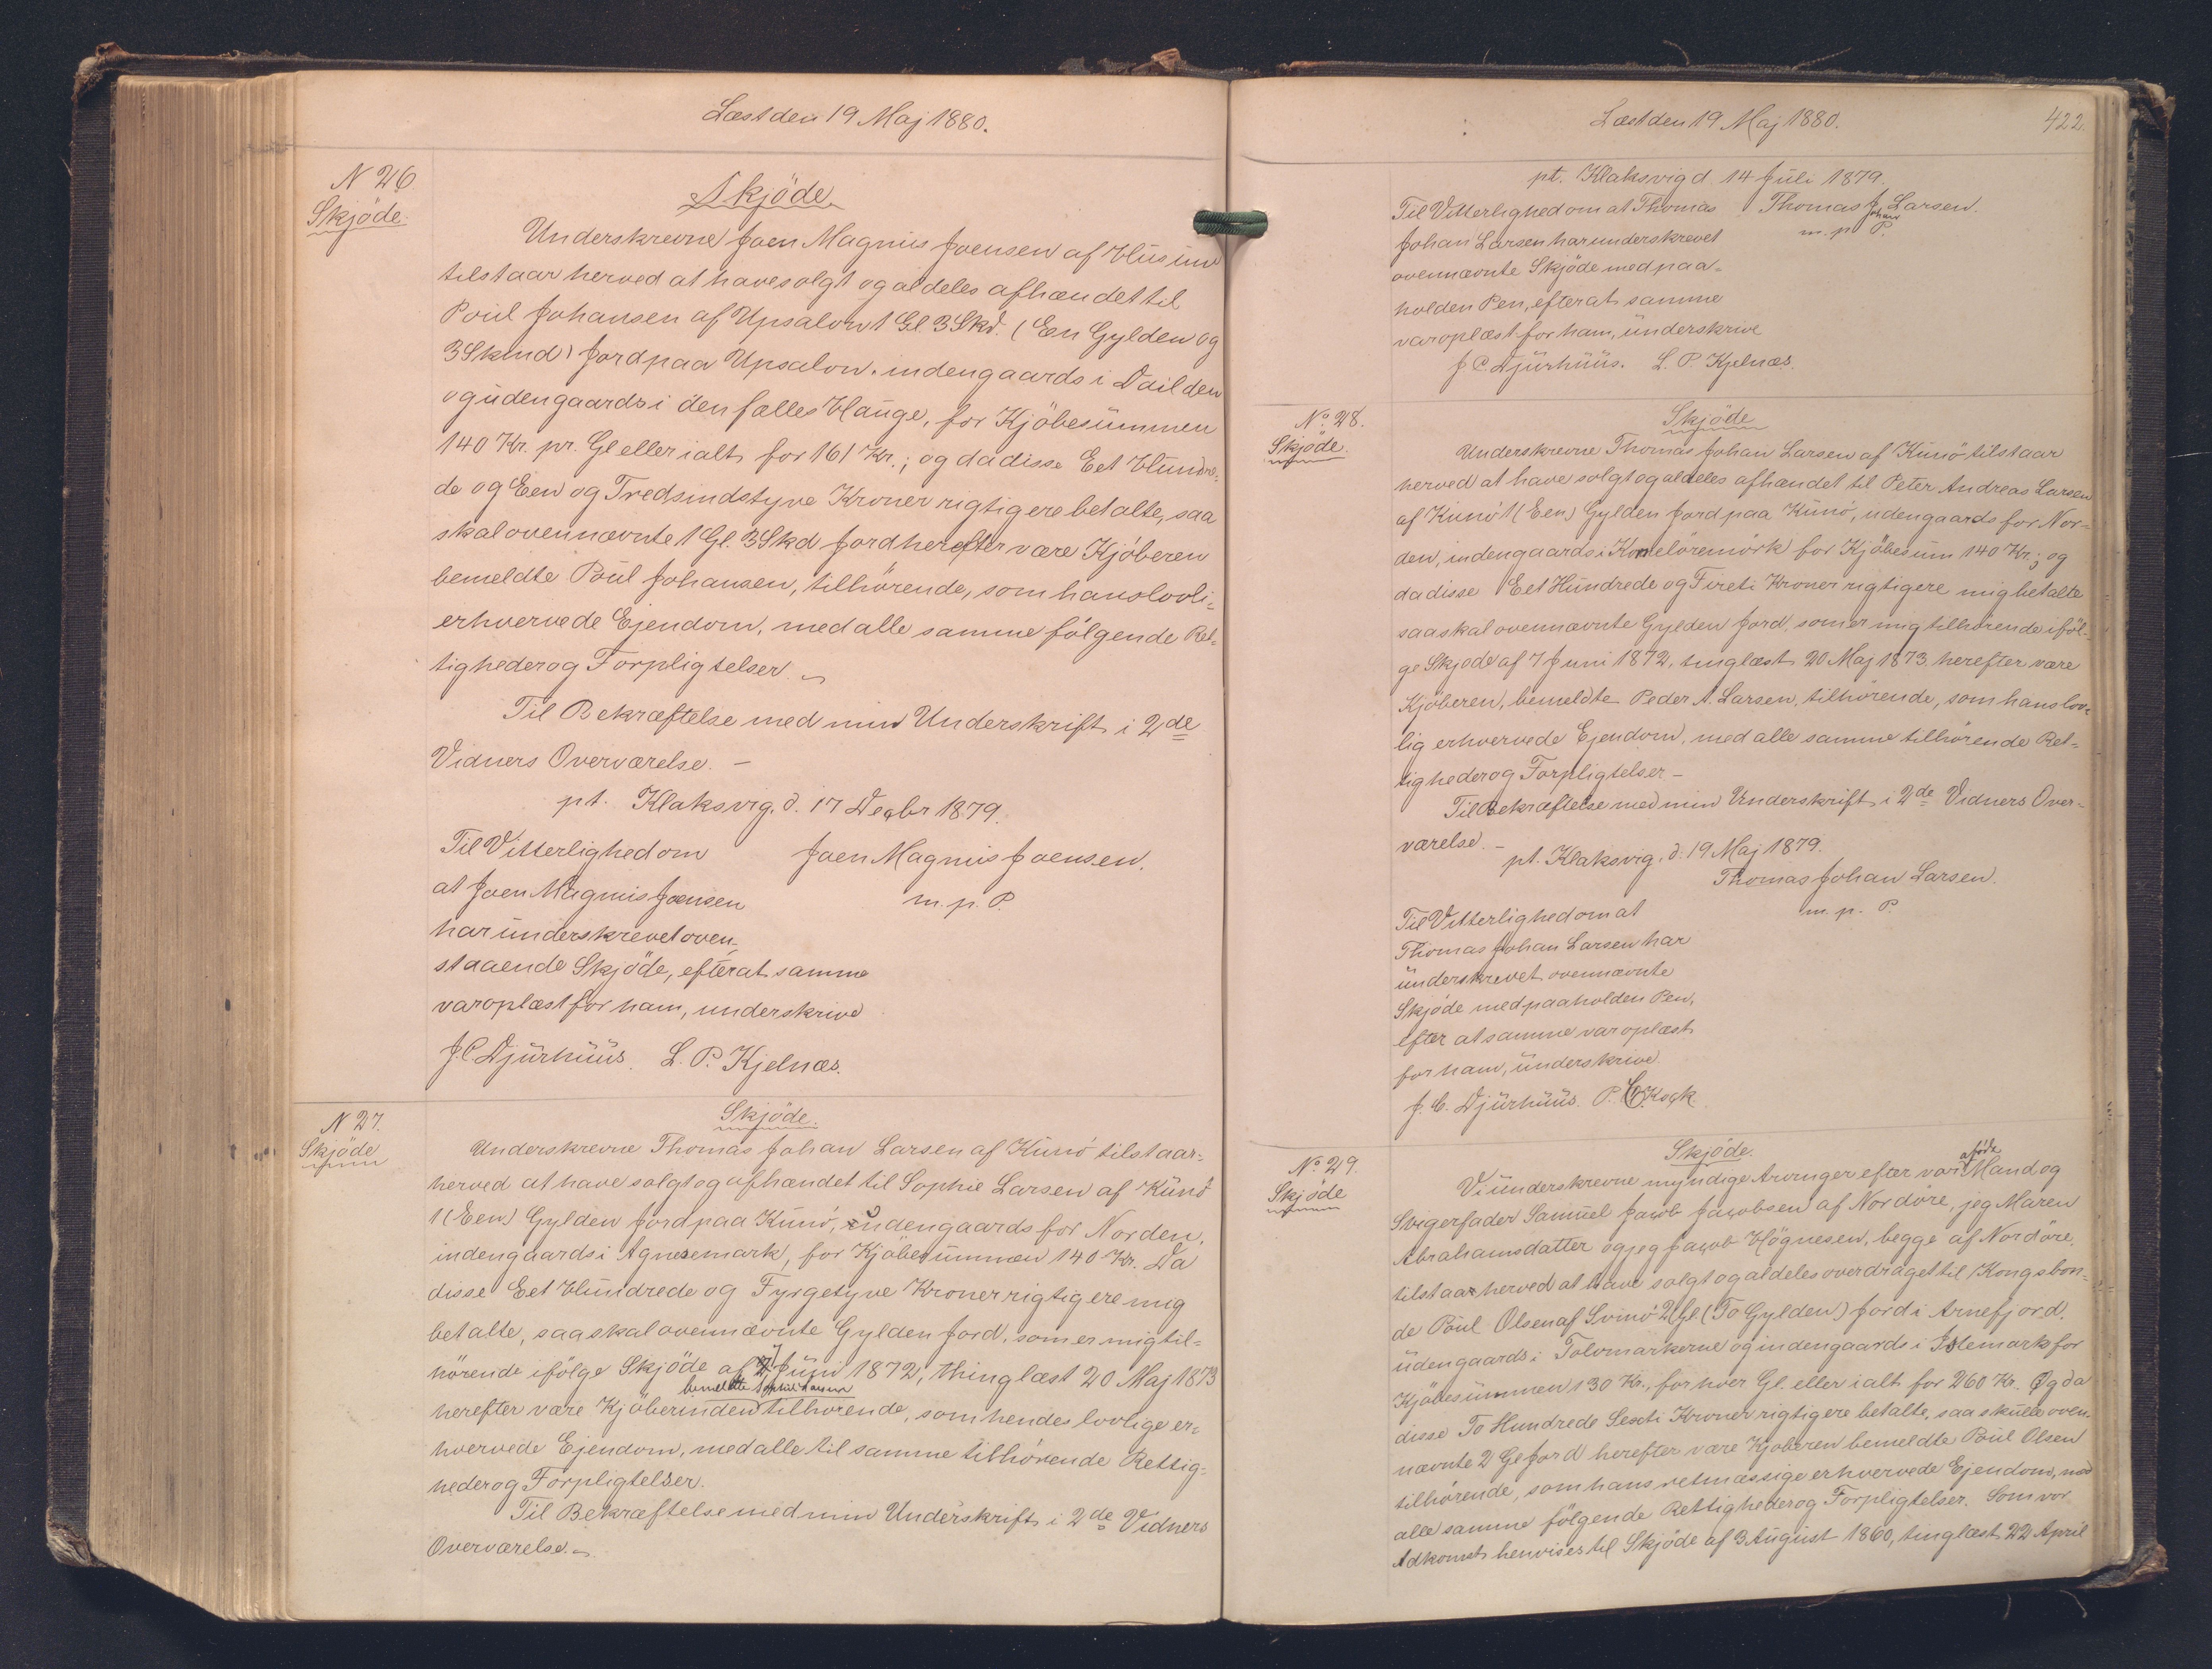 Læst den 19 Maj 1880.
N 26
Skjöde.
Skjöde
Underskrevne Joen Magnus Joensen af Husum
tilstaar herved at have solgt og aldeles afhændet til
Poul Johansen af Upsalom 1 Gl 3 Skd. (En Gylden og
3 Skind) Jord paa Upsalom, indengaards i Dail den
og udengaards i den fælles Hauge, for Kjöbesummen
140 Kr. pr. Gl eller ialt for 161 Kr.; og da disse Eet Hundre-
de og Een og Tredsindstyve Kroner rigtig ere betalte, saa
skal ovennævnte 1 Gl. 3 Skd Jord herefter være Kjöberen
bemeldte Poul Johansen, tilhörende, som hans lovli-
erhvervede Ejendom, med alle samme fölgende Ret-
tigheder og Forpligtelser.
Til Bekræftelse med min Underskrift i 2de
Vidners Overværelse. –
pt. Klaksvig, d. 17 Decbr 1879.
Til Vitterlighed om
Joen Magnus Joensen.
at Joen Magnus Joensen
m. p. P.
har underskrevet oven-
staaende Skjöde, efterat samme
var oplæst for ham, underskrive
J. C. Djurhuus. L. P. Kjelnæs.
N 27.
Skjöde
Skjöde.
Underskrevne Thomas Johan Larsen af Kunö tilstaar-
herved at have solgt og afhændet til Sophie Larsen af Kunö
1 (Een) Gylden Jord paa Kunö, udengaards for Norden,
indengaards i Agnesemark, for Kjöbesummen 140 Kr. Da
disse Eet Hundrede og Fyrgetyve Kroner rigtig ere mig
betalte, saa skal ovennævnte Gylden Jord, som er mig til-
hörende ifölge Skjöde af 7 Juni 1872, thinglæst 20 Maj 1873
bemeldte Sophie Larsen
herefter være Kjöberinden tilhörende, som hendes lovlige er-
hvervede Ejendom, med alle til samme tilhörende Rettig-
heder og Forpligtelser.
Til Bekræftelse med min Underskrift i 2de Vidners
Overværelse.
Læst den 19 Maj 1880.
422.
pt. Klaksvig d. 14 Juli 1879.
Til Vitterlighed om at Thomas
Thomas J. Larsen.
Johan
Johan Larsen har underskrevet
m. p. P.
ovennævnte Skjöde med paa-
holden Pen, efterat samme
var oplæst for ham, underskrive
J. C. Djurhuus. L. P. Kjelnæs.
No. 28.
Skjöde.
Skjöde
Underskrevne Thomas Johan Larsen af Kunö tilstaar
herved at have solgt og aldeles afhændet til Peter Andreas Larsen
af Kunö 1 (Een) Gylden Jord paa Kunö, udengaards for Nor-
den, indengaards i for Kjöbesum 140 Kr.; og
da disse Eet Hundrede og Fireti Kroner rigtig ere mig betalte
saa skal ovennævnte Gylden Jord, som er mig tilhörende iföl-
ge Skjöde af 7 Juni 1872, tinglæst 20 Maj 1873 herefter være
Kjöberen, bemeldte Peder A. Larsen, tilhörende, som hans lov-
lig erhvervede Ejendom, med alle samme tilhörende Ret-
tigheder og Forpligtelser –
Til Bekræftelse med min Underskrift i 2de Vidners Over-
værelse. –
pt. Klaksvig, d. 19 Maj 1879.
Thomas Johan Larsen.
Til Vitterlighed om at
m. p. P.
Thomas Johan Larsen har
underskrevet ovennævnte
Skjöde med paaholden Pen,
efter at samme var oplæst
for ham, underskrive
J. C. Djurhuus. P. C. Kock
No. 29.
Skjöde
Skjöde.
aföde
Vi underskrevne myndige Arvinger efter vor Mand og
Svigerfader Samuel Jacob Jacobsen af Nordöre, jeg Maren
Abrahamsdatter og jeg Jacob Högnesen, begge af Nordöre,
tilstaar herved at have solgt og aldeles overdraget til Kongsbon-
de Poul Olsen af Svinö 2 Gl (To Gylden) Jord i Arnefjord,
udengaards i Tolvmarkerne og indengaards i Islemark for
Kjöbesummen 130 Kr., for hver Gl. eller ialt for 260 Kr. Og da
disse To Hundrede Sexti Kroner rigtig ere betalte, saa skulle oven-
nævnte 2 Gl Jord herefter være Kjöberen bemeldte Poul Olsen
tilhörende, som hans retmæssige erhvervede Ejendom, med
alle samme fölgende Rettigheder og Forpligtelser. Som vor
Adkomst henvises til Skjöde af 3 August 1860, tinglæst 22 April